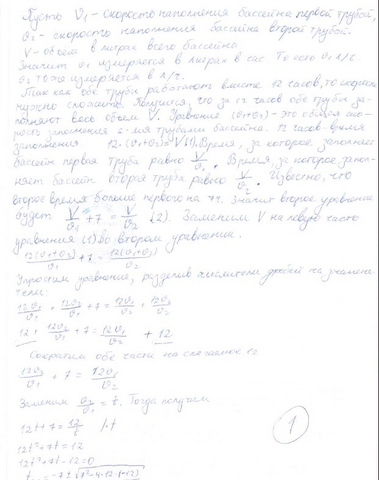 Пусть v₁ - скорость наполнения бассейна первой трубой,
v₂ - скорость наполнения бассейна второй трубой.
V - объем в литрах всего бассейна.
Значит v₁ измеряется в литрах в час. То есть v₁ л/ч.
v₂ тоже измеряется в л/ч.
Так как обе трубы работают вместе 12 часов, то скорости
нужно сложить. Получится, что за 12 часов обе трубы за-
полняют весь объем V. Уравнение (v₁+v₂) - это общая ско-
рость заполнения 2-мя трубами бассейна. 12 часов - время
заполнения. 12·(v₁+v₂)=V (1). Время, за которое заполняет
бассейн первая труба равно V/v₁. Время, за которое запол-
няет бассейн вторая труба равно V/v₂. Известно, что
второе время больше первого на 7ч. Значит второе уравнение
будет V/v₁ + 7 = V/v₂ (2). Заменим V на левую часть
уравнения (1) во втором уравнении.
12(v₁+v₂)/v₁ + 7 = 12(v₁+v₂)/v₂
Упростим уравнение, разделив числители дробей на знамена-
тели:
12v₁/v₁ + 12v₂/v₁ + 7 = 12v₁/v₂ + 12v₂/v₂
12 + 12v₂/v₁ + 7 = 12v₁/v₂ + 12
Сократим обе части на слагаемое 12
12v₂/v₁ + 7 = 12v₁/v₂
Заменим v₂/v₁ = t. Тогда получим
12t + 7 = 12/t /·t
12t²+7t=12
12t²+7t-12=0
-7±√7²-4·12·(-12)
1